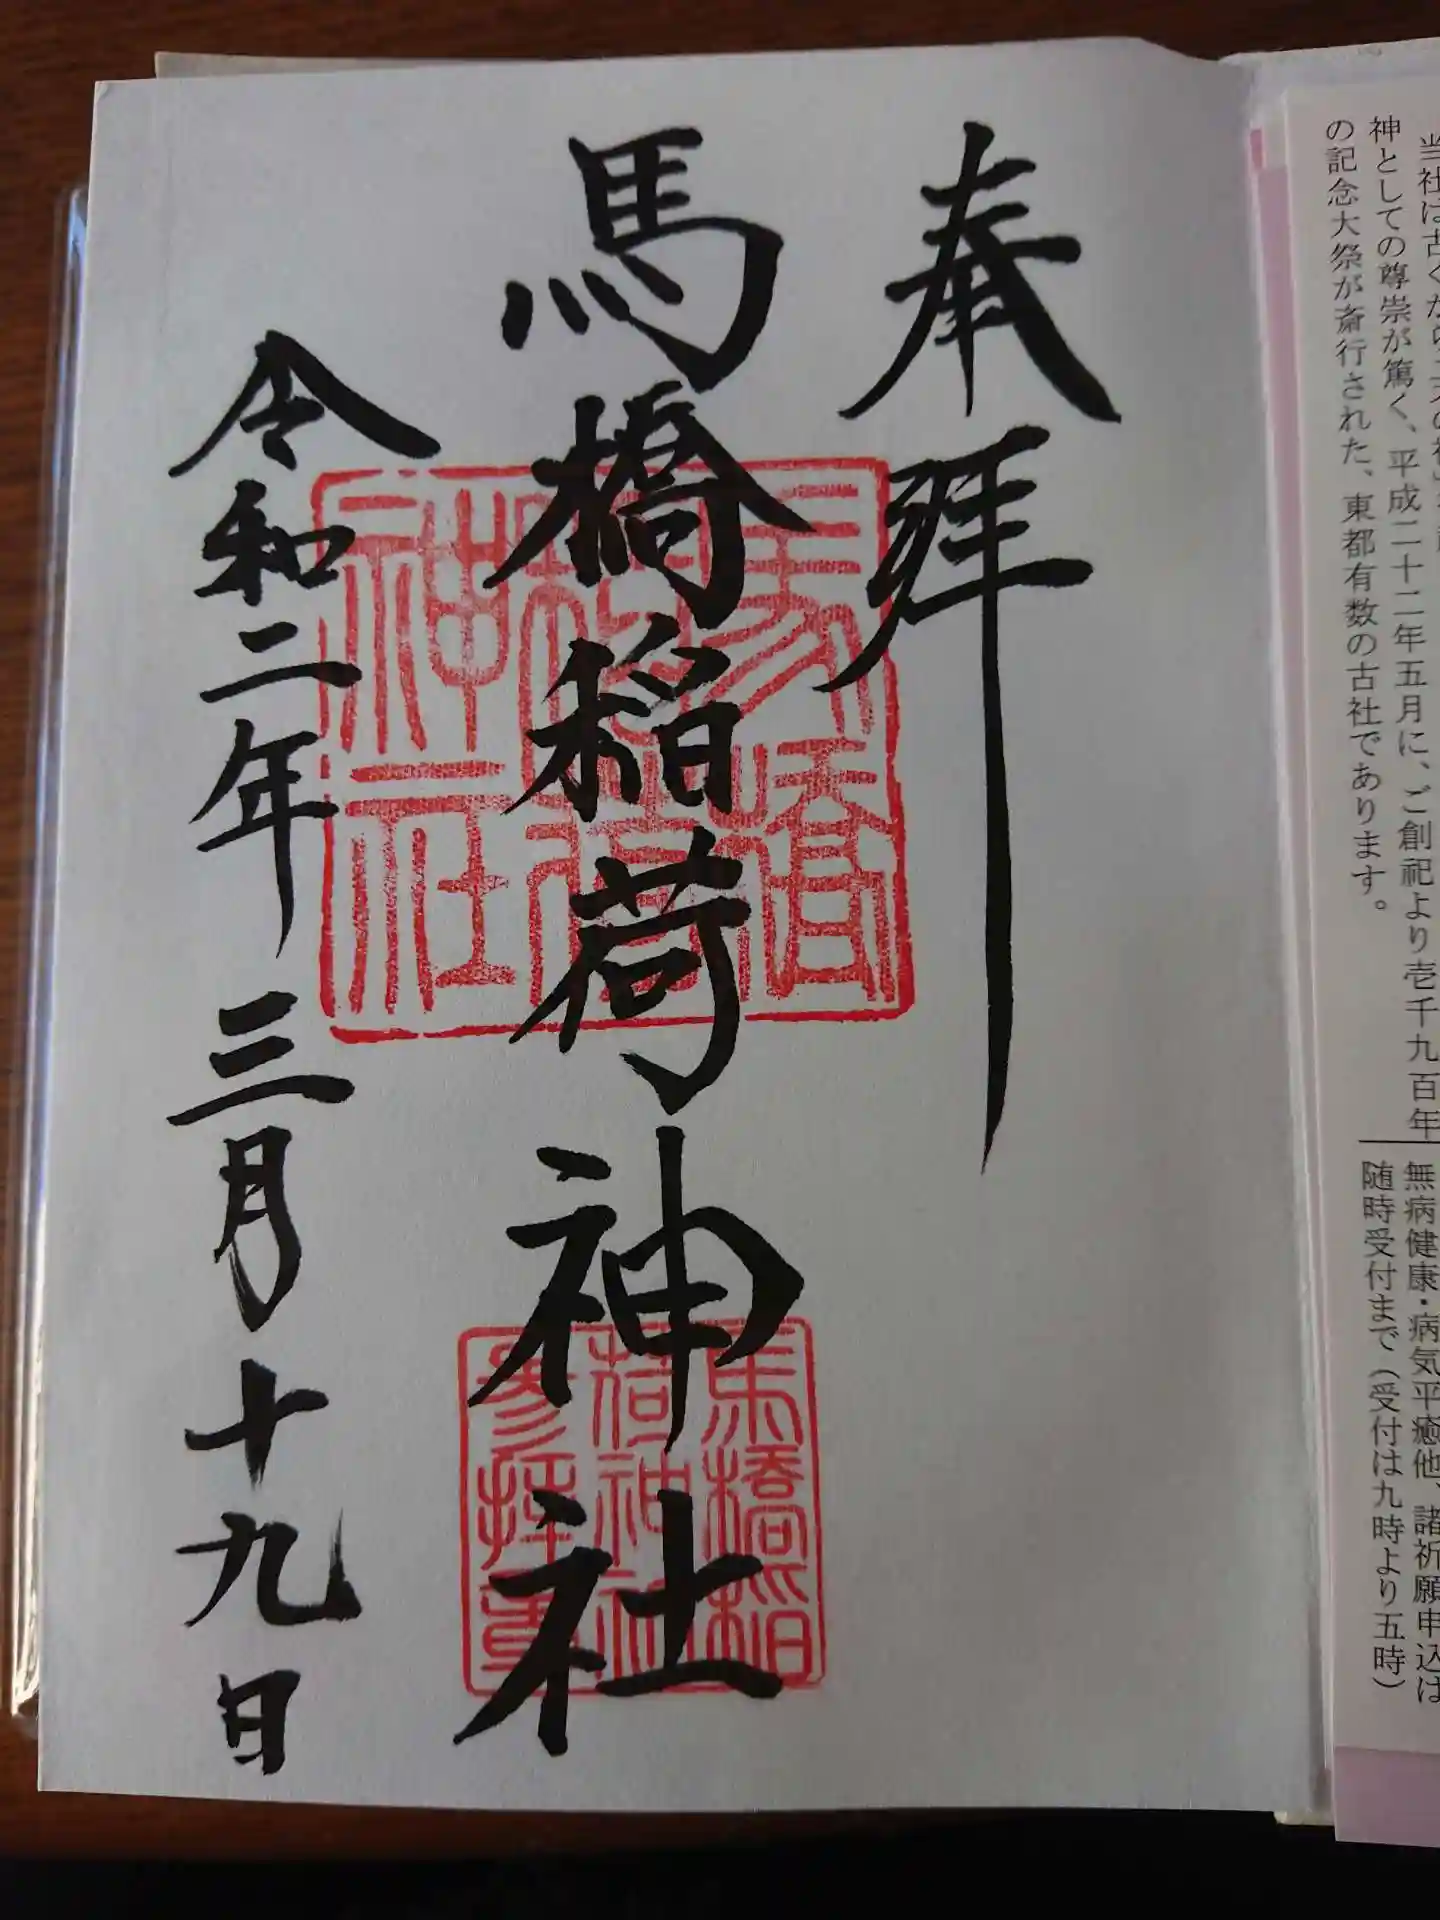 神としての尊崇が篤く、平成二十二年五月に、ご創祀より壱千九百年
の記念大祭が斎行された、東都有数の古社であります。
無病健康・病気平癒他、諸祈願申込は
随時受付まで（受付は九時より五時）
奉拝
馬橋稲荷神社
令和二年 三月十九日
馬橋
稲荷
神社
馬橋稲
荷神社
参拝章